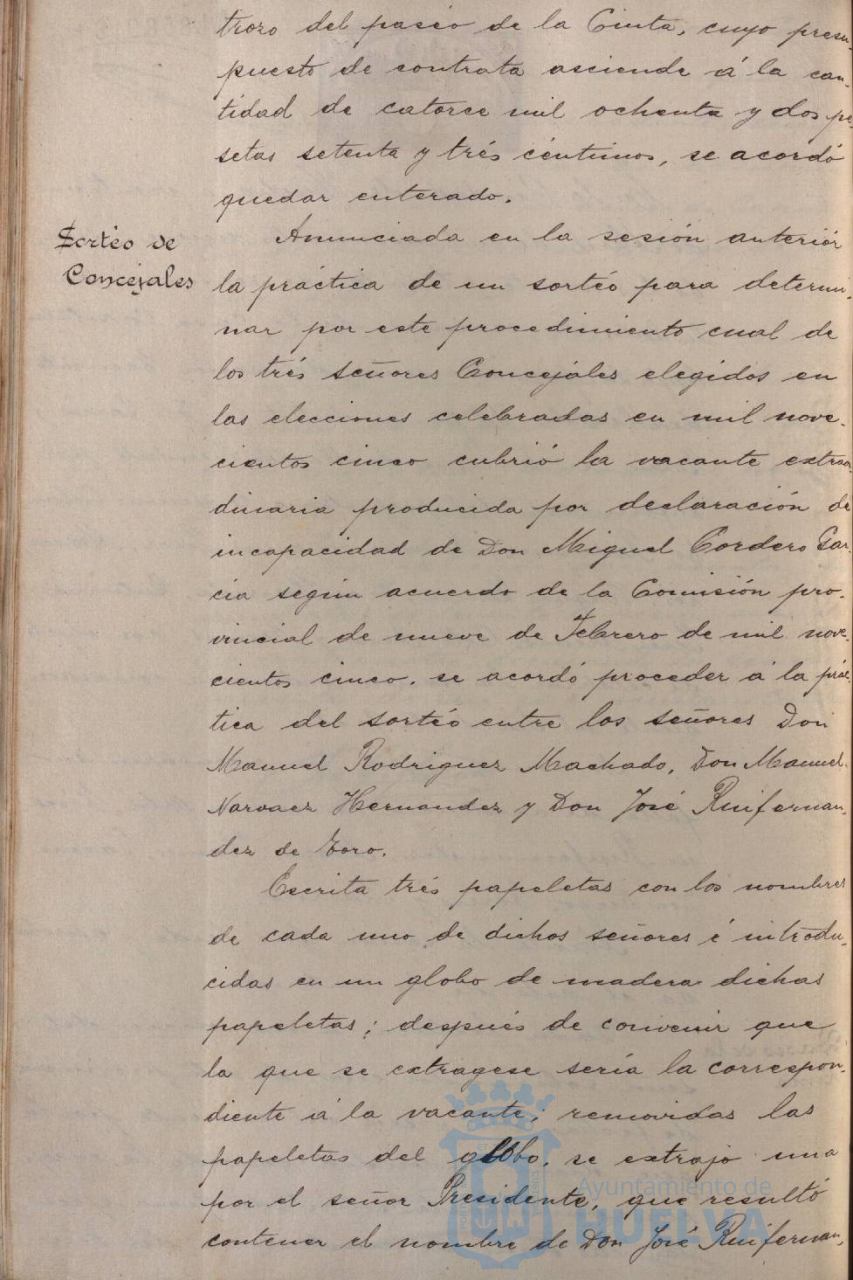 trozo del paseo de la Cinta, cuyo presu-
puesto de contrata asciende á la can-
tidad de catorce mil ochenta y dos pe-
setas setenta y trés céntimos, se acordó
quedar enterado.
Sorteo de
Concejales
Anunciada en la sesión anteriór
la práctica de un sortéo para determi-
nar por este procedimiento cual de
los trés señores Concejales elegidos en
las elecciones celebradas en mil nove-
cientos cinco cubrió la vacante extraor-
dinaria producida por declaración de
incapacidad de Don Miguel Cordero Gar-
cia según acuerdo de la Comisión pro-
vincial de nueve de Febrero de mil nove-
cientos cinco, se acordó proceder á la prác-
tica del sortéo entre los señores Don
Manuel Rodriguez Machado, Don Manuel
Narvaez Hernandez y Don José Ruifernan-
dez de Toro.
Escrita trés papeletas con los nombres
de cada uno de dichos señores é introdu-
cidas en un globo de madera dichas
papeletas; después de convenir que
la que se extragese sería la correspon-
diente á la vacante; removidas las
papeletas del globo, se extrajo una
por el señor Presidente, que resultó
contener el nombre de Don José Ruifernan-
Ayuntamiento de
HUELVA